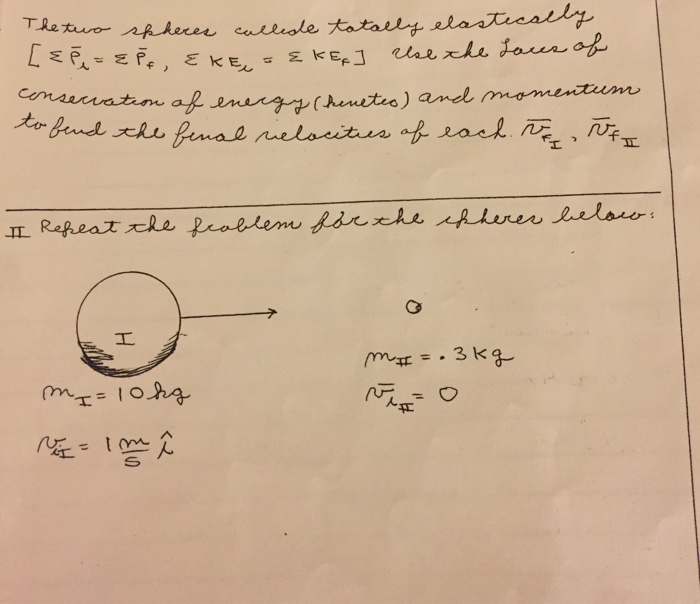 The two spheres collide totally elastically
[ Σ P̄ᵢ = Σ P̄f , Σ KEᵢ = Σ KEf ] Use the Laws of
conservation of energy (kinetic) and momentum
to find the final velocities of each. v̄fI , v̄fII
II Repeat the problem for the spheres below:
I
mI = 10 kg
viI = 1 m/s î
mII = .3 kg
v̄iII = 0